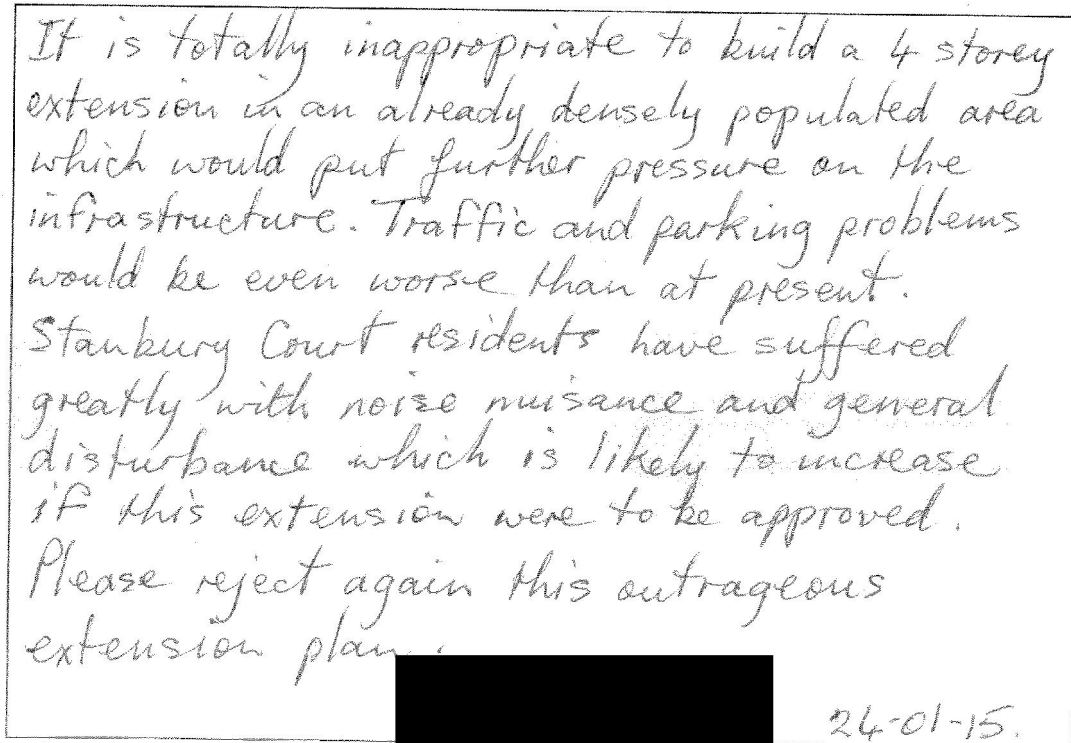 It is totally inappropriate to build a 4 storey
extension in an already densely populated area
which would put further pressure on the
infrastructure. Traffic and parking problems
would be even worse than at present.
Stanbury Court residents have suffered
greatly with noise nuisance and general
disturbance which is likely to increase
if this extension were to be approved.
Please reject again this outrageous
extension plan.
24-01-15.